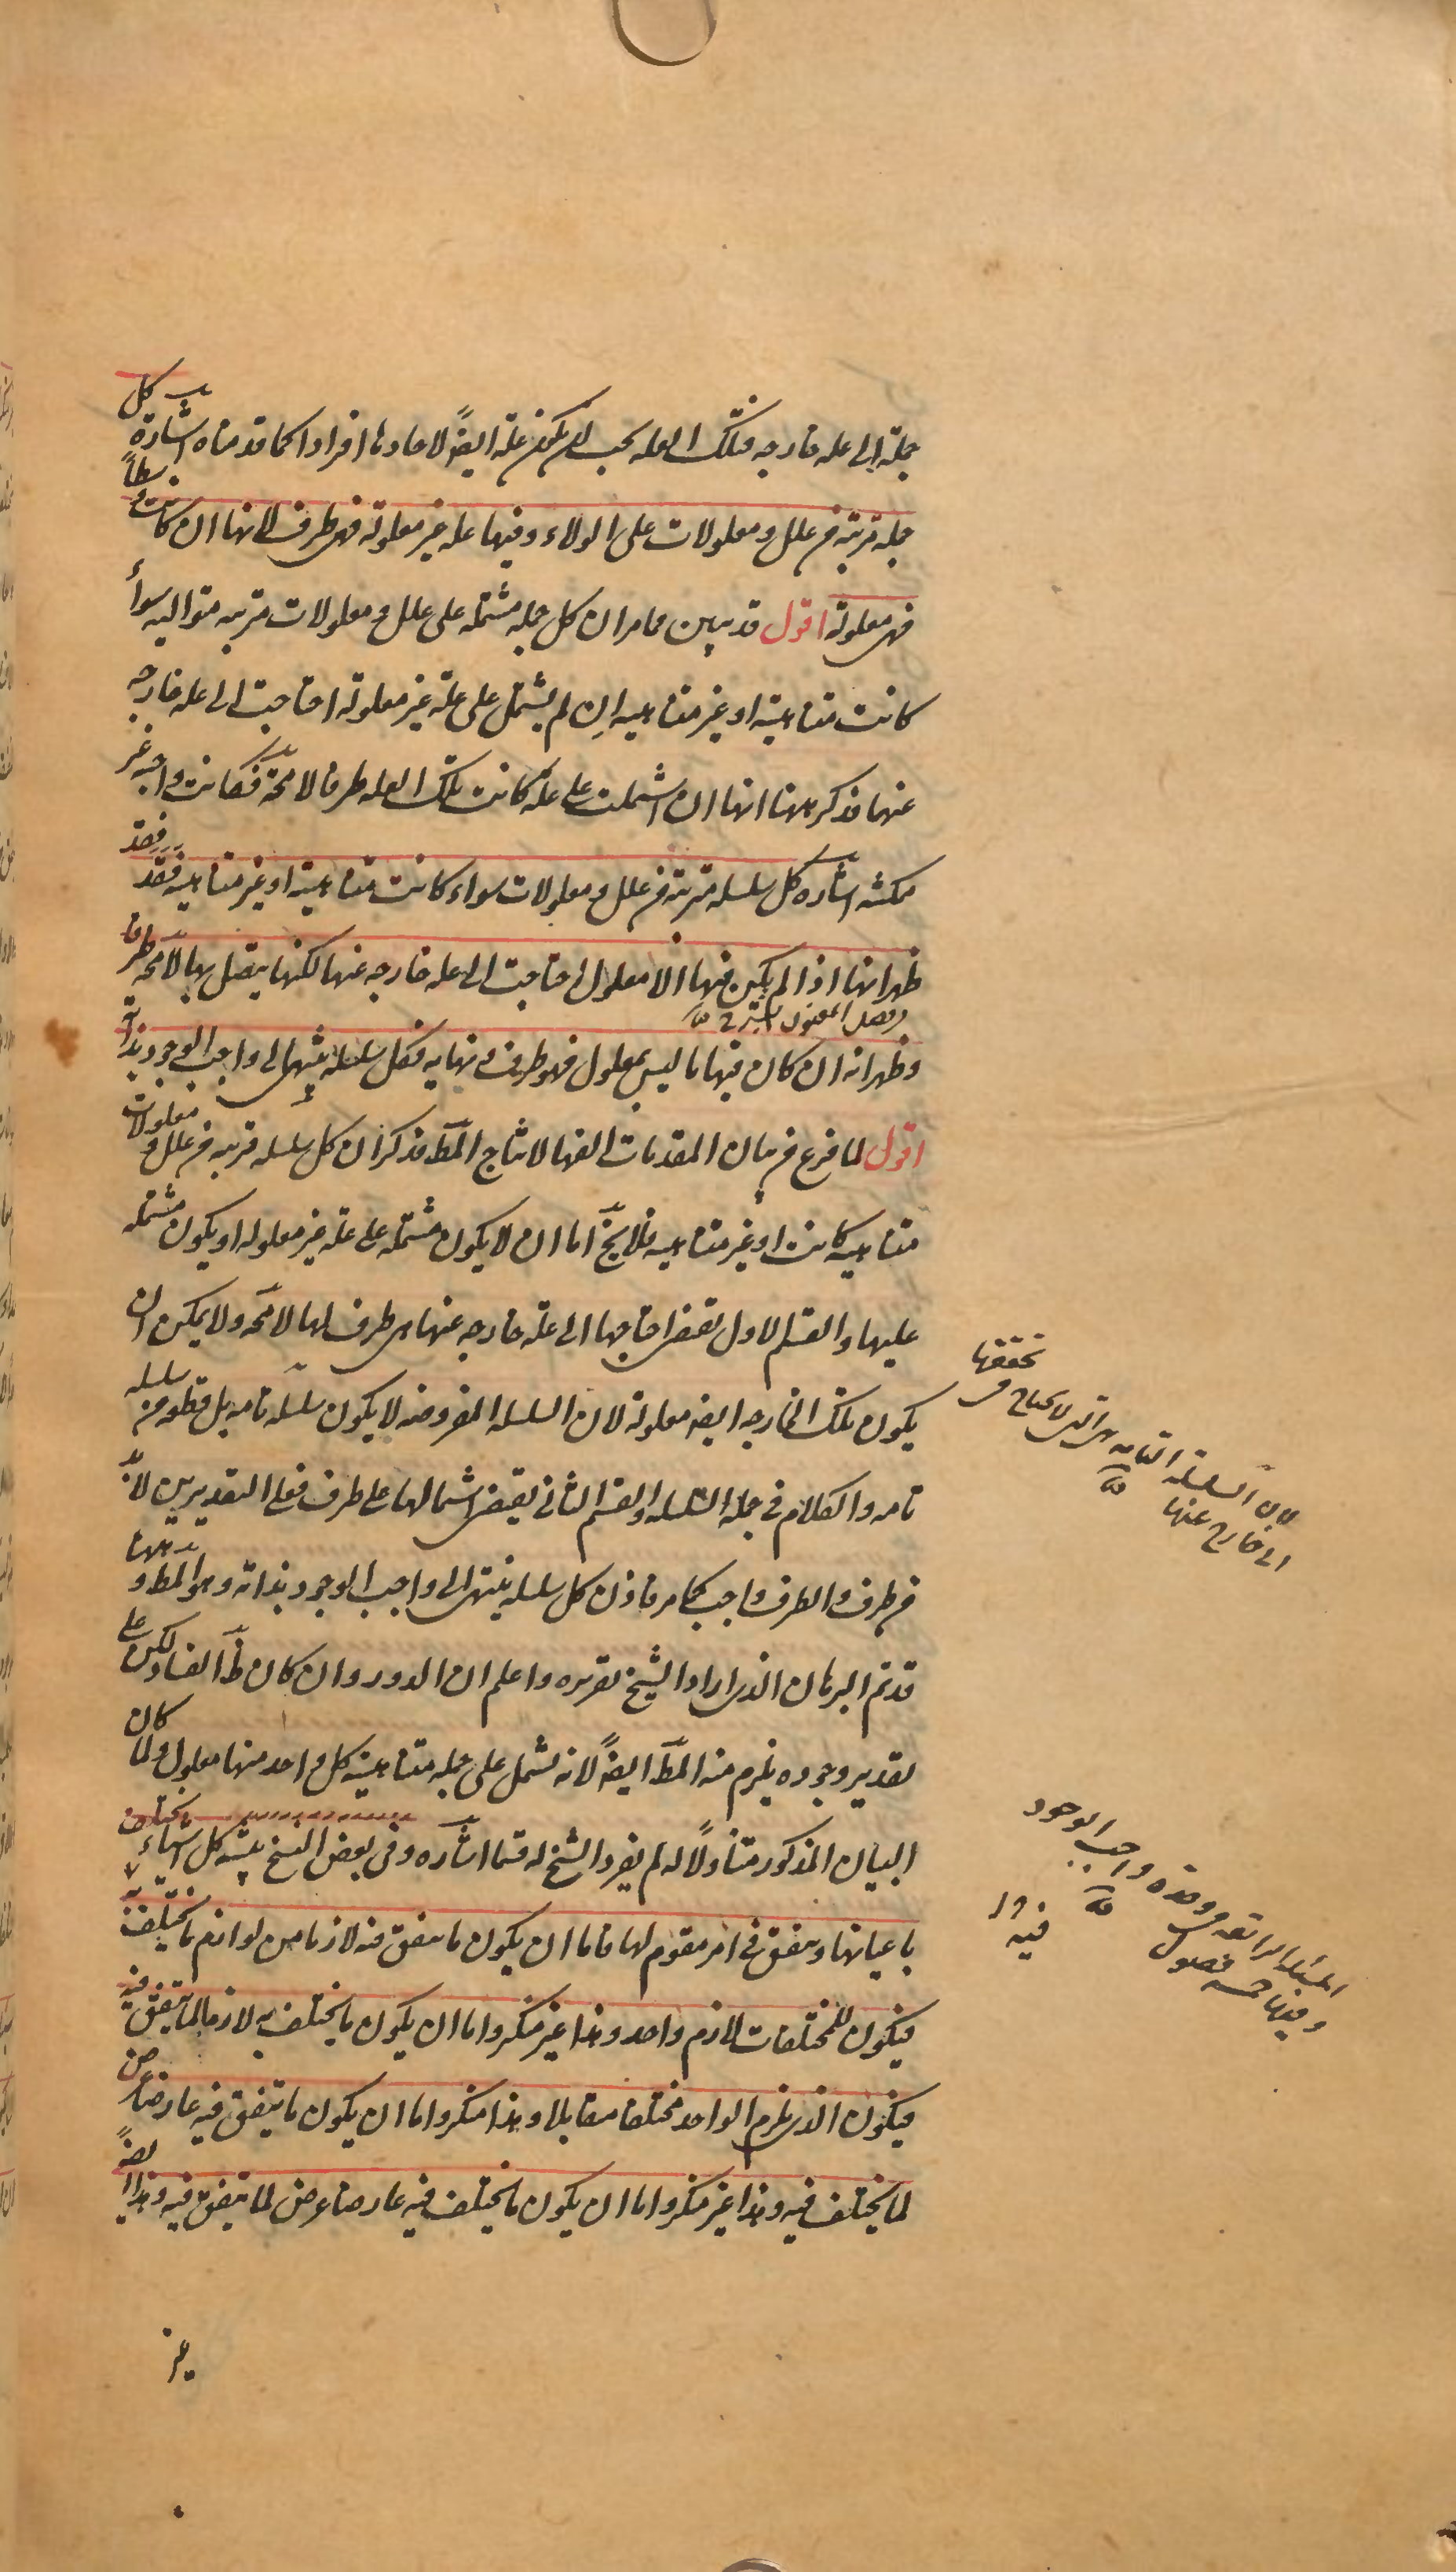 جملة الى عله خارجه فتلك العله يجب ان يكون علة ايضاً لاحادها افرادا كما قدمناه اشارة كل
جمله مترتبة من علل و معلولات على الولاء و فيها عله غير معلولة فهى طرف لانها ان كانت وسطاً
فهى معلولة اقول قد تبين مما مر ان كل جمله مشتمله على علل و معلولات مترتبه متواليه سواء
كانت متناهية او غير متناهيه ان لم يشتمل على علة غير معلولة احتاجت الى عله خارجه
عنها فذكر ههنا انها ان اشتملت على علة كانت تلك العله طرفا لا محة فكانت واجبه غير
ممكنه اشاره كل سلسله مترتبة من علل و معلولات سواء كانت متناهية او غير متناهيه فقد
ظهر انها اذا لم يكن فيها الا معلول احتاجت الى عله خارجه عنها لكنها يتصل بها لا محه طرفا
و ظهر انه ان كان فيها ما ليس بمعلول فهو طرف و نهايه فكل سلسله ينتهى الى واجب الوجود بذاته
اقول لما فرغ من بيان المقدمات الفها لانتاج المط فذكر ان كل سلسله مترتبه من علل و معلولات
متناهيه كانت او غير متناهيه فلا يخ اما ان لا يكون مشتمله على علة غير معلوله او يكون مشتمله
عليها و القسم الاول يقتضى احتياجها الى علة خارجه عنها هى طرف لها لا محه و لا يمكن ان
يكون تلك الخارجه ايضه معلولة لان السلسله المفروضه لا يكون سلسله تامه بل قطعه من سلسله
تامه و الكلام فى جمله السلسله و القسم الثانى يقتضى اشتمالها على طرف فعلى التقديرين لا بد
من طرف و الطرف واجب كما مر فاذن كل سلسله ينتهى الى واجب الوجود بذاته و هو المط و ههنا
قد تم البرهان الذى اراد الشيخ تقريره و اعلم ان الدور و ان كان ظ الفساد لكن على
تقدير وجوده يلزم منه المط ايضاً لانه يشمل على جمله متناهية كل واحد منها معلول و لما كان
البيان المذكور متناولاً له لم يفرد الشيخ له قسما اشاره و فى بعض النسخ تنبيه كل اشياء يختلف
باعيانها و يتفق فى امر مقوم لها فاما ان يكون ما يتفق فيه لازما من لوازم ما يختلف به
فيكون للمختلفات لازم واحد و هذا غير منكر و اما ان يكون ما يختلف به لازما لما يتفق فيه
فيكون الذى يلزم الواحد مختلفا متقابلا و هذا منكر و اما ان يكون ما يتفق فيه عارضا عرض
لما يختلف فيه و هذا غير منكر و اما ان يكون ما يختلف فيه عارضا عرض لما يتفق فيه و هذا ايضاً
غير
لان السلسلة التامه هى التى لا يحتاج فى تحققها
الى خارج عنها
المسئله الرابعه فى وحدة واجب الوجود
و فيها خمسه فصول
فيه